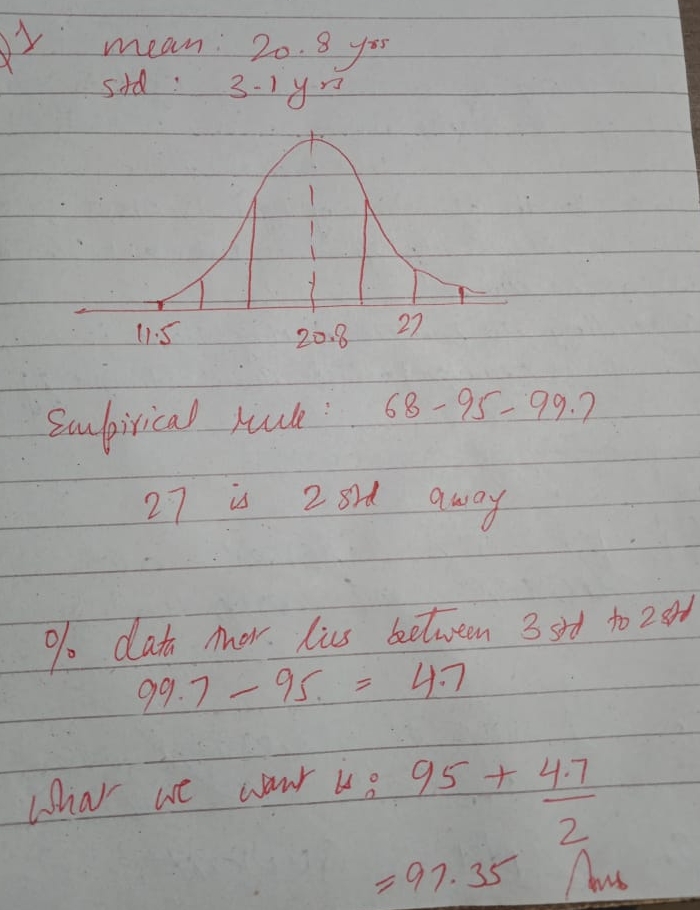 Q1. mean: 20.8 yrs
std : 3.1 yrs
11.5 20.8 27
Empirical rule: 68-95-99.7
27 is 2 std away
% data that lies between 3 std to 2 std
99.7 - 95 = 4.7
What we want is: 95 + 4.7
2
= 97.35 Ans